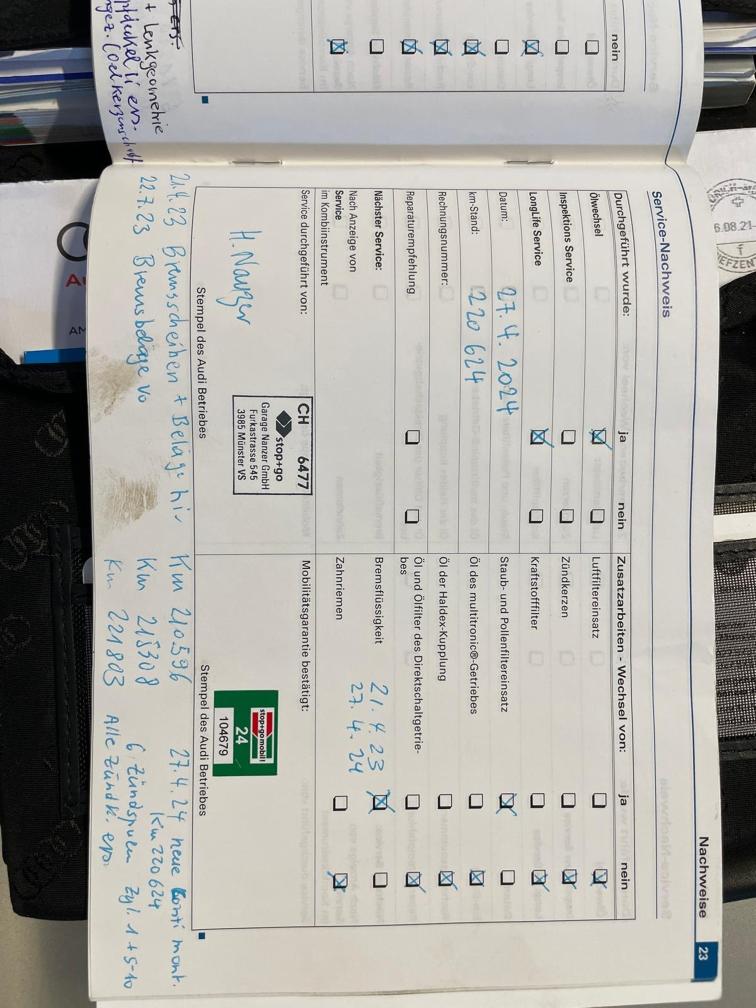 + Lenkgeometrie
nein
Nachweise
23
Service-Nachweis
Durchgeführt wurde:
ja
nein
Ölwechsel
Inspektions Service
LongLife Service
Datum:
27. 4. 2024
km-Stand:
220 624
Rechnungsnummer:
Reparaturempfehlung
Nächster Service:
Nach Anzeige von
Service
im Kombiinstrument
Service durchgeführt von:
CH 6477
stop+go
Garage Nanzer GmbH
Furkastrasse 545
3985 Münster VS
H. Nanzer
Stempel des Audi Betriebes
Zusatzarbeiten - Wechsel von:
ja
nein
Luftfiltereinsatz
Zündkerzen
Kraftstofffilter
Staub- und Pollenfiltereinsatz
Öl des multitronic®-Getriebes
Öl der Haldex-Kupplung
Öl und Ölfilter des Direktschaltgetrie-
bes
Bremsflüssigkeit
21. 4. 23
27. 4. 24
Zahnriemen
Mobilitätsgarantie bestätigt:
stop+go mobil!
24
104679
Stempel des Audi Betriebes
21.4.23 Bremsscheiben + Beläge hi. Km 210596
22.7.23 Bremsbeläge Vo Km 215308
Km 221803
27. 4. 24 neue Conti mont.
Km 220624
6 Zündspulen Zyl. 1 + 5-10
Alle Zündk.
6.08.21-